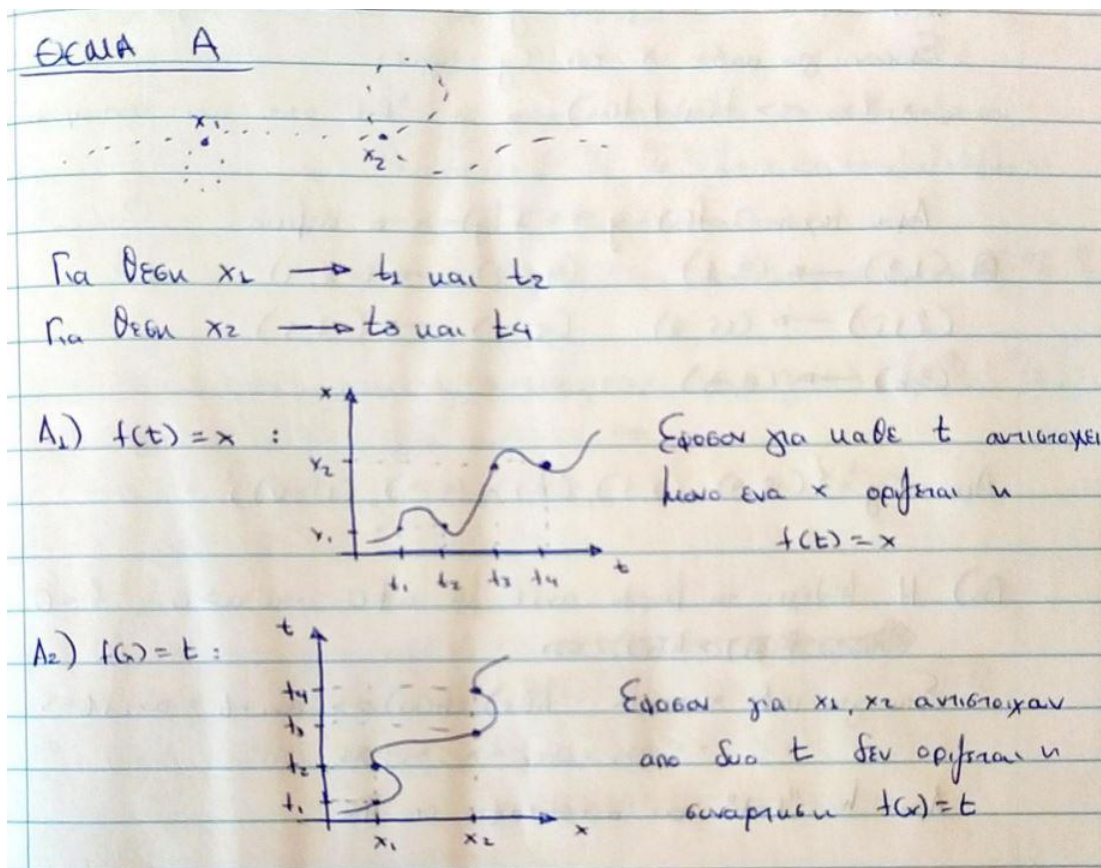 ΘΕΜΑ Α
x1
x2
Για θεση x1 → t1 και t2
Για θεση x2 → t3 και t4
A1) f(t) = x :
x
x2
x1
t1 t2 t3 t4
t
Εφοσον για καθε t αντιστοιχει
μονο ενα x οριζεται η
f(t) = x
A2) f(x) = t :
t
t4
t3
t2
t1
x1 x2
x
Εφοσον για x1, x2 αντιστοιχαν
απο δυο t δεν οριζεται η
συναρτηση f(x) = t